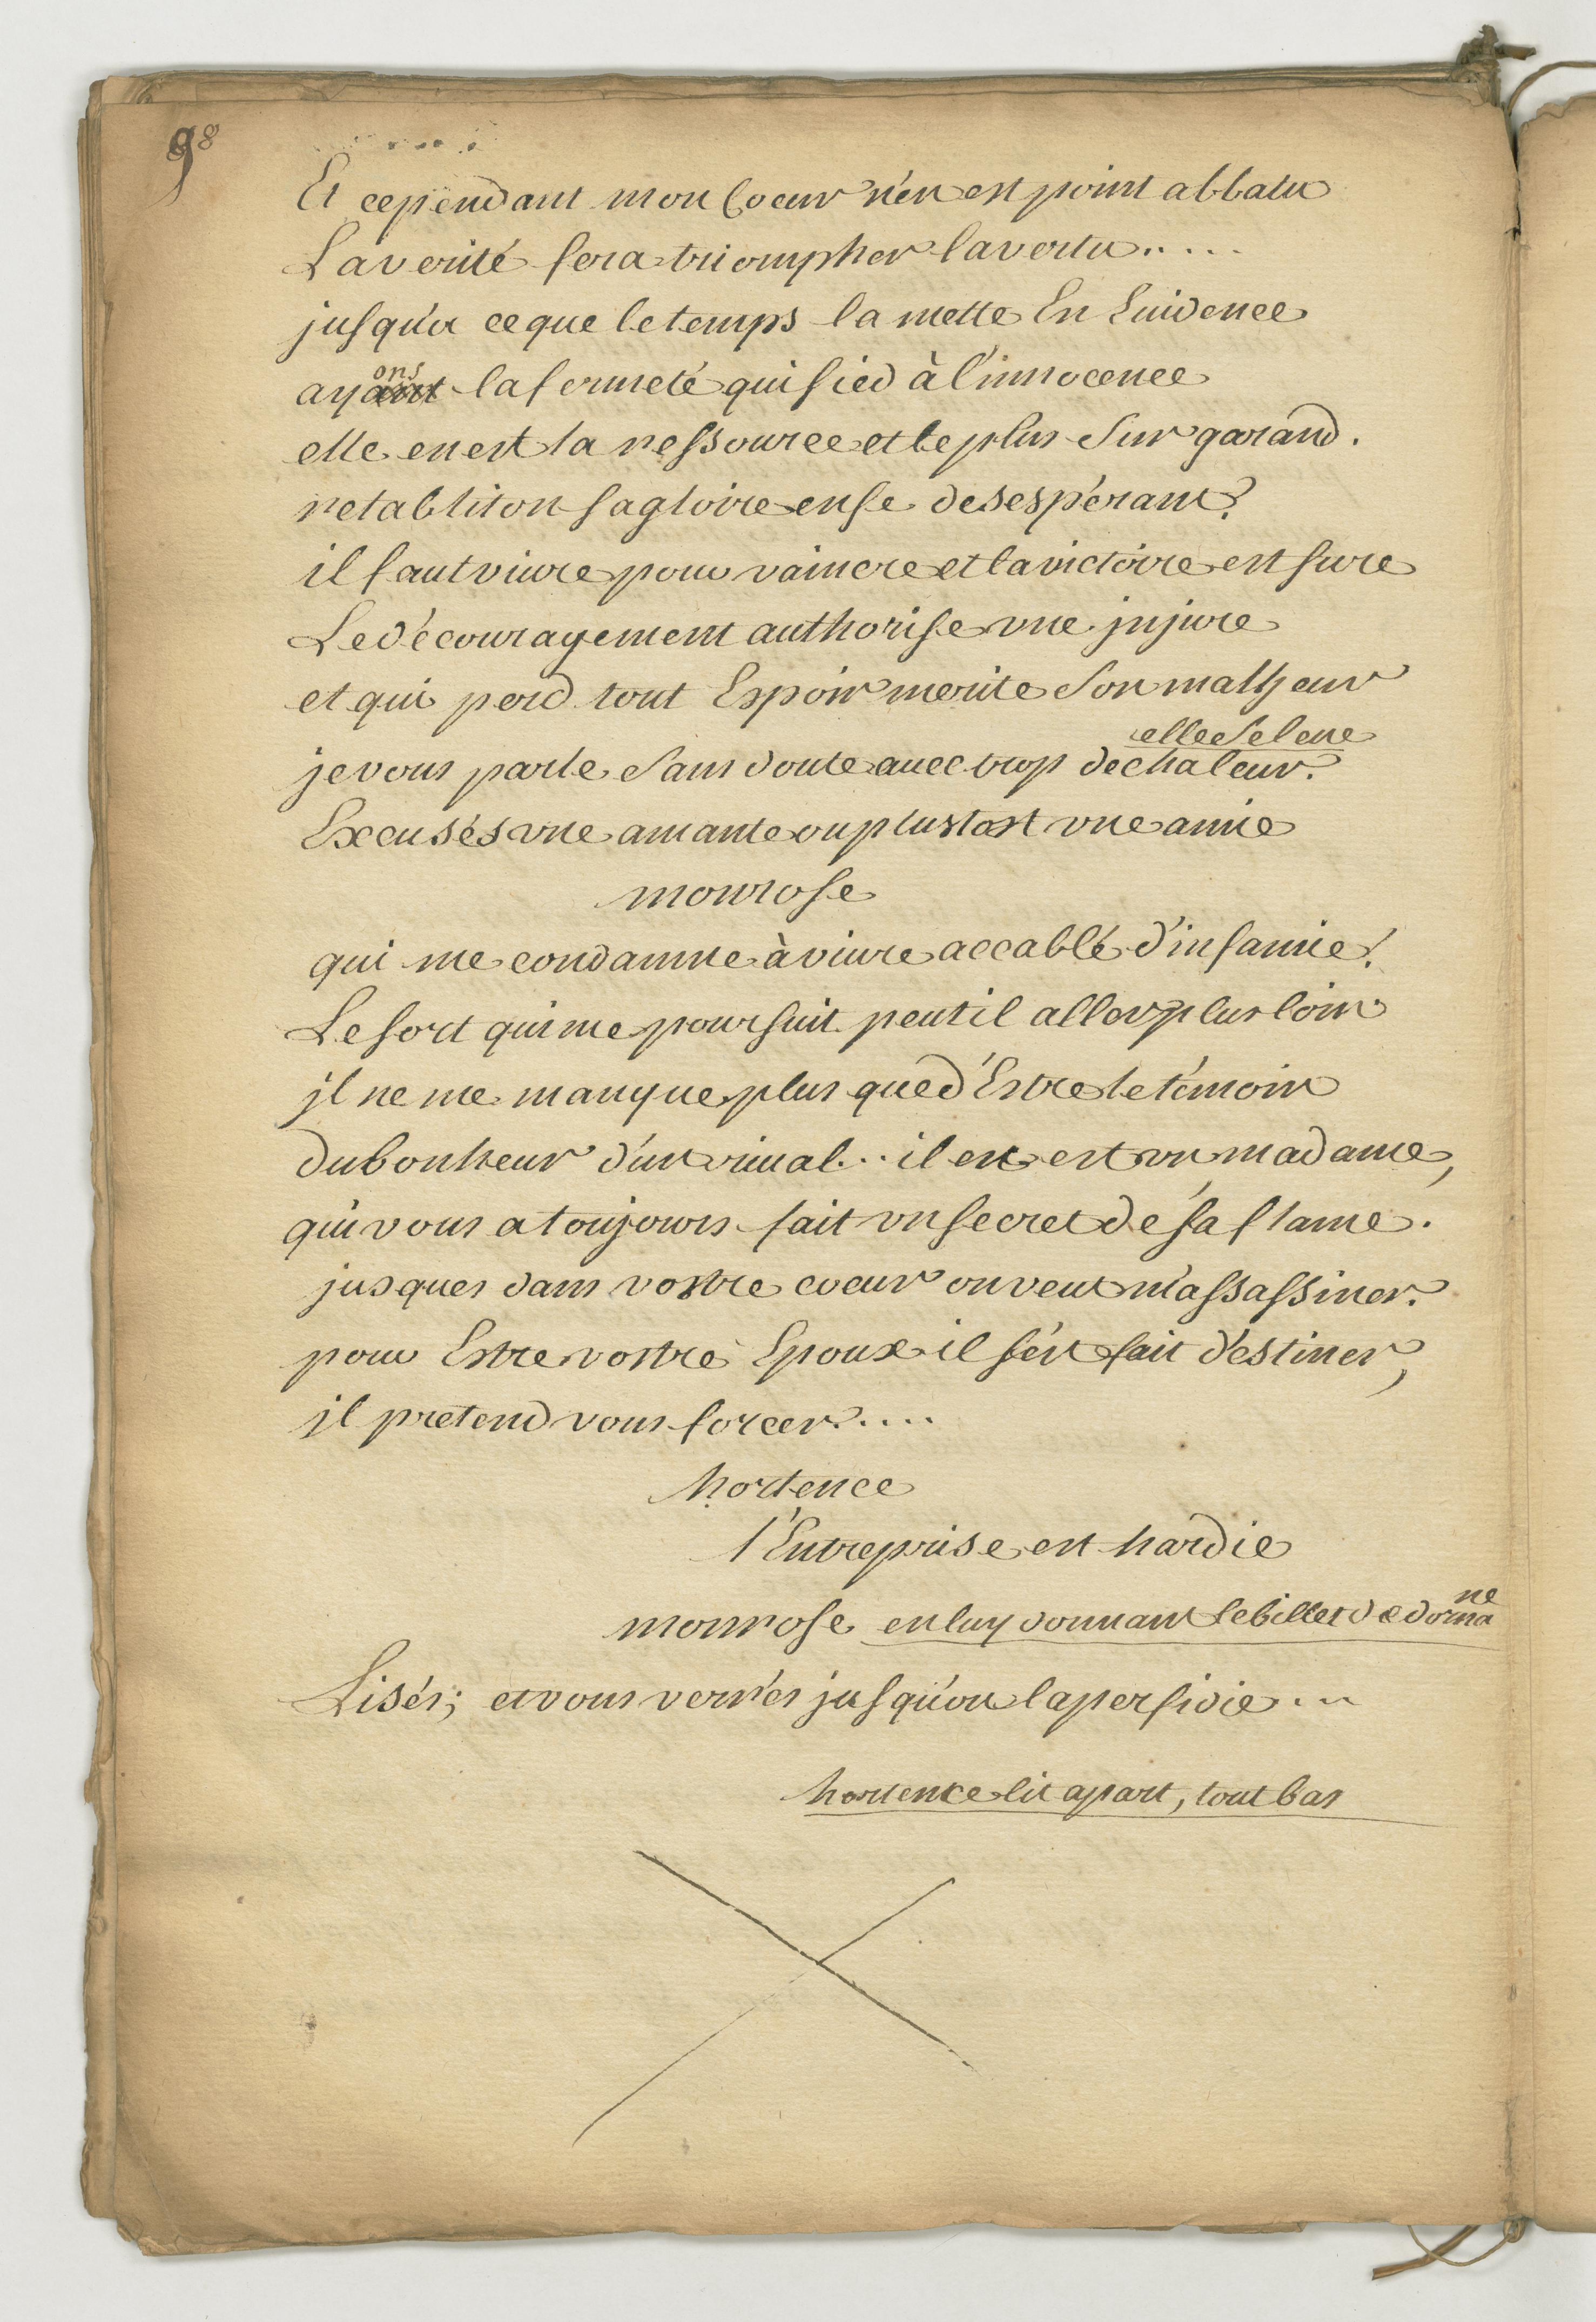 98
Et cependant mon Coeur n'en est point abbatu
La verité fera triompher la vertu.....
jusqu'a ce que le temps la mette En Euidence
ayons la fermeté qui sied à l'innocence
elle en est la ressource et le plus Sur garand.
retablit on sa gloire en se desespérant?
il faut viure pour vaincre et la victoire est sure
Le découragement authorise vne injure
et qui perd tout Espoir merite Son malheur
elle se leue
je vous parle Sans doute auec trop de chaleur.
Excusés vne amante ou plustost vne amie
monrose
qui me condamne à viure accablé d'infamie!
Le sort qui me poursuit peut il aller plus loin
il ne me manque plus que d'Estre le témoin
du bonheur d'un riual... il en est vn, madame,
qui vous a toujours fait vn secret de sa flame.
jusques dans vostre coeur on veut m'assassiner.
pour Estre vostre Epoux il s'est fait destiner,
il pretend vous forcer.....
hortence
l'Entreprise est hardie
monrose en luy donnant le billet de dorna
ne
Lisés; et vous verrés jusqu'ou la perfidie...
hortence lit apart, tout bas